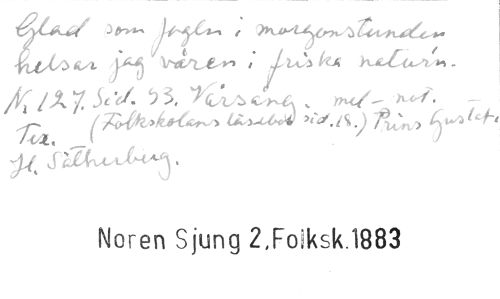 Glad som fogln i morgonstunden
helsar jag våren i friska natur'n.
N. 127. Sid. 93. Vårsång. mel-not.
Tex. (Folkskolans läsebok sid. 18.) Prins Gustaf.
H. Sätherberg.
Noren Sjung 2,Folksk.1883